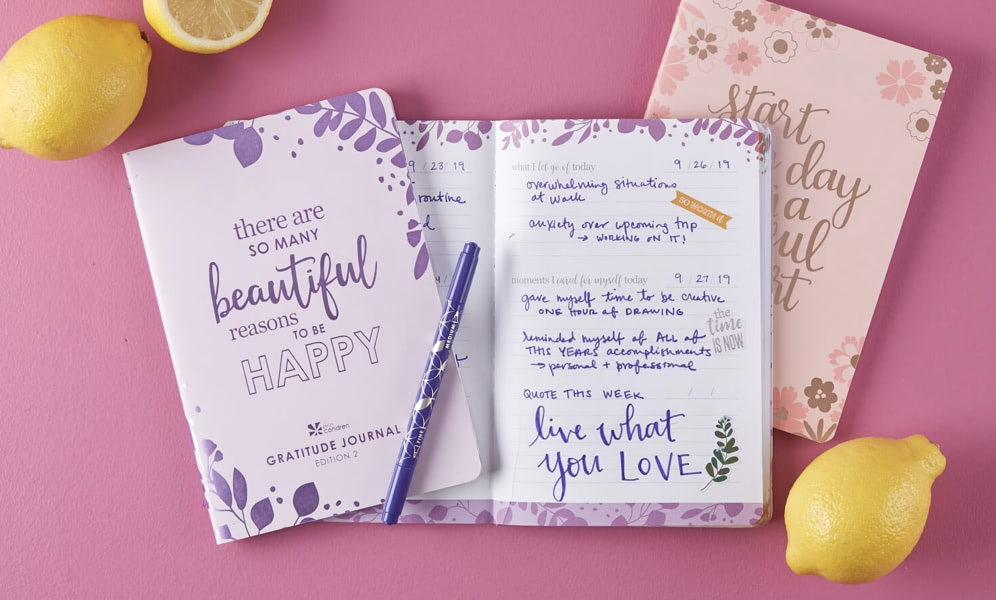 there are
SO MANY
beautiful
reasons
TO BE
HAPPY
erin
condren
GRATITUDE JOURNAL
EDITION 2
9 / 23 / 19
routine
what I let go of today 9 / 26 / 19
overwhelming situations
at work
SO WORTH IT
anxiety over upcoming trip
→ WORKING ON IT!
moments I cared for myself today 9 / 27 / 19
gave myself time to be creative
ONE HOUR of DRAWING
the
time
IS NOW
reminded myself of ALL of
THIS YEARS accomplishments
→ personal + professional
QUOTE THIS WEEK / /
live what
you LOVE
MEDIUM
FINE
start
day
a